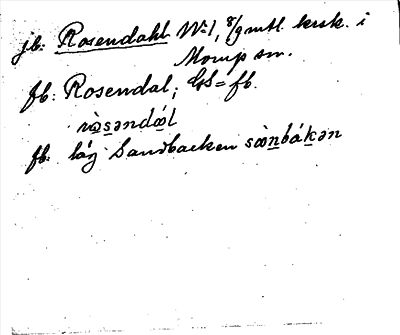 jb: Rosendahl No 1, 8/9 mtl. krsk. i
Morup sn.
fb: Rosendal; GS = fb.
ròsəndɷ̀l
fb: låg Sandbacken sɷ̀nbákən